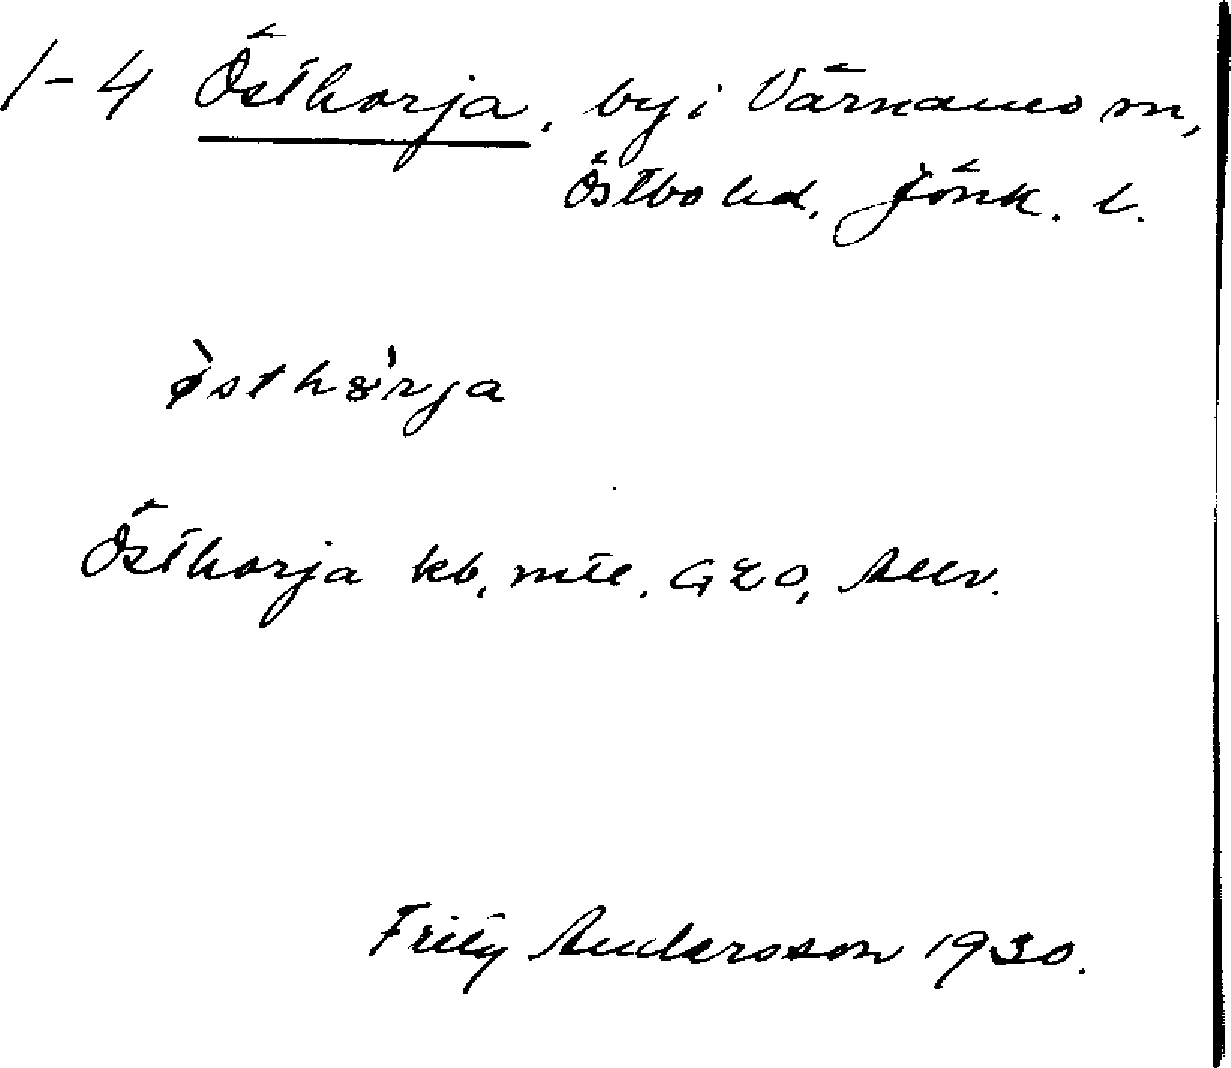 1-4 Östhorja, by i Värnamo sn,
Östbo hd, Jönk. l.
Östhorja kb, mtl, GEO,
Fritz Andersson 1930.